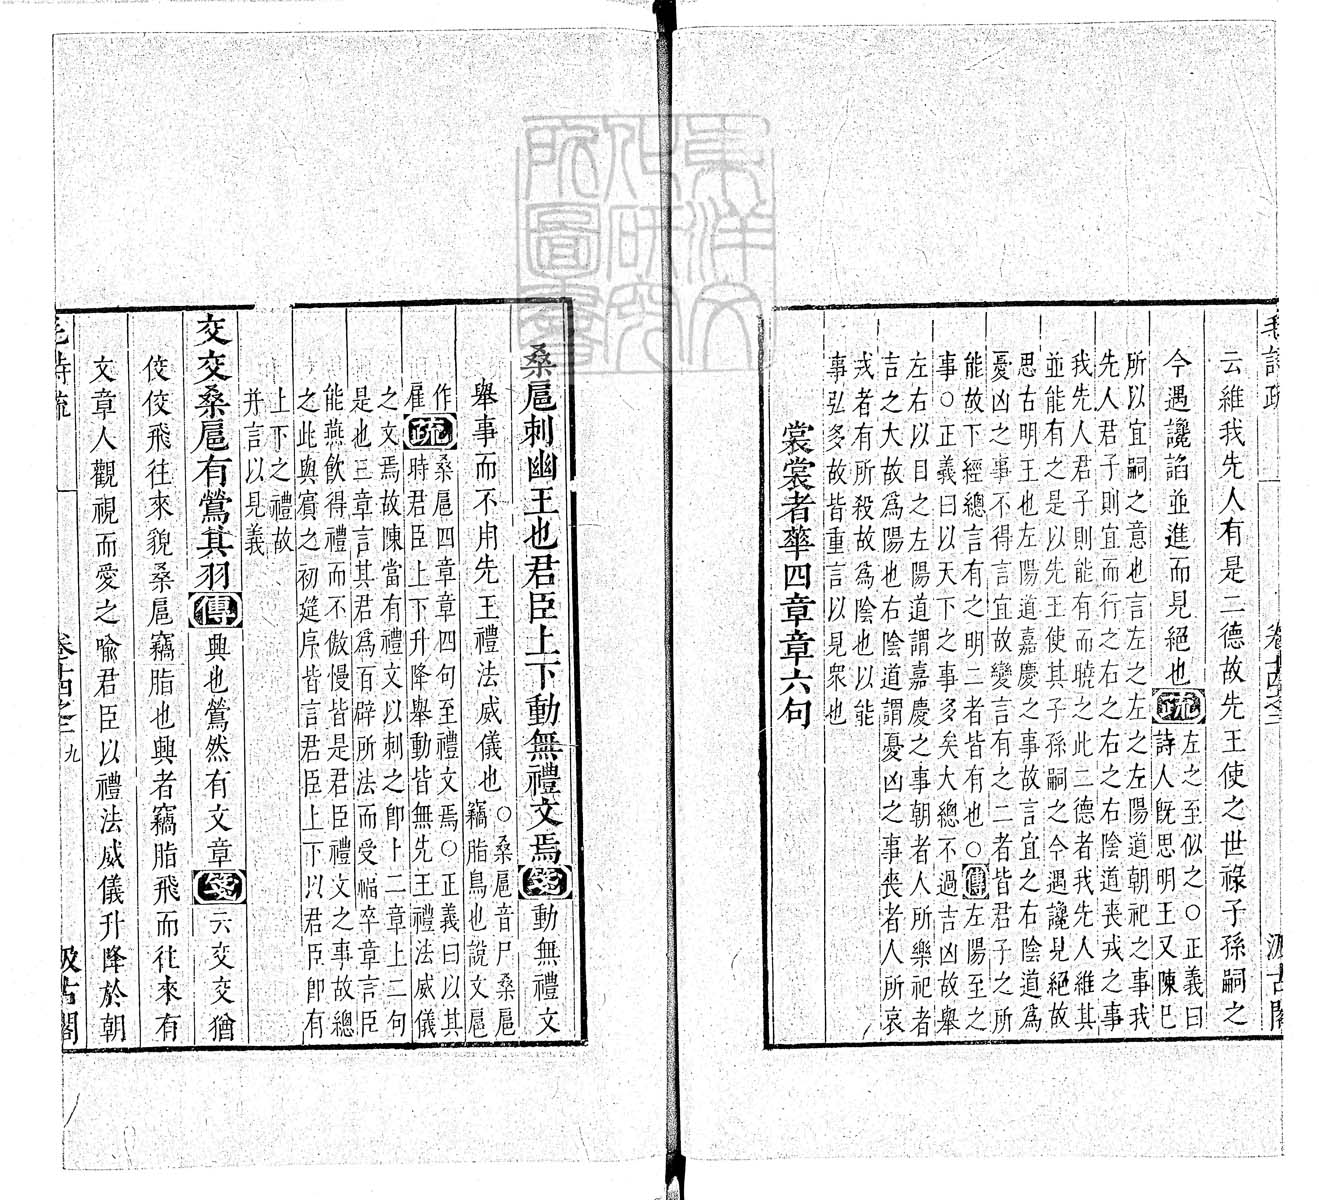 毛詩疏
卷十四之二
汲古閣
云維我先人有是二德故先王使之世祿子孫嗣之
今遇讒諂並進而見絕也疏左之至似之○正義曰
詩人旣思明王又陳巳
所以宜嗣之意也言左之左之左陽道朝祀之事我
先人君子則宜而行之右之右之右陰道喪戎之事
我先人君子則能有而曉之此二德者我先人維其
並能有之是以先王使其子孫嗣之今遇讒見絕故
思古明王也左陽道嘉慶之事故言宜之右陰道爲
憂凶之事不得言宜故變言有之二者皆君子之所
能故下經總言有之明二者皆有也○傳左陽至之
事○正義曰以天下之事多矣大總不過吉凶故舉
左右以目之左陽道謂嘉慶之事朝者人所樂祀者
言之大故爲陽也右陰道謂憂凶之事喪者人所哀
戎者有所殺故爲陰也以能
事弘多故皆重言以見衆也
裳裳者華四章章六句
桑扈刺幽王也君臣上下動無禮文焉箋動無禮文
舉事而不用先王禮法威儀也○桑扈音戶桑扈
竊脂鳥也說文扈
作
雇疏桑扈四章章四句至禮文焉○正義曰以其
時君臣上下升降舉動皆無先王禮法威儀
之文焉故陳當有禮文以刺之卽上二章上二句
是也三章言其君爲百辟所法而受福卒章言臣
能燕飲得禮而不傲慢皆是君臣禮文之事故總
之此與賓之初筵序皆言君臣上下以君臣卽有
上下之禮故
并言以見義
交交桑扈有鶯其羽傳興也鶯然有文章箋云交交猶
佼佼飛往來貌桑扈竊脂也興者竊脂飛而往來有
文章人觀視而愛之喻君臣以禮法威儀升降於朝
毛詩疏
卷十四之二
九
汲古閣
東洋文
化研究
所圖書